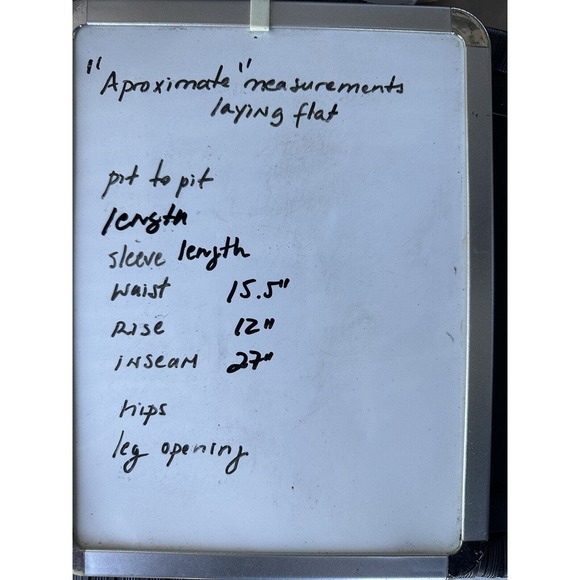 "Aproximate" measurements
laying flat
pit to pit
length
sleeve length
waist 15.5"
Rise 12"
inseam 27"
hips
leg opening